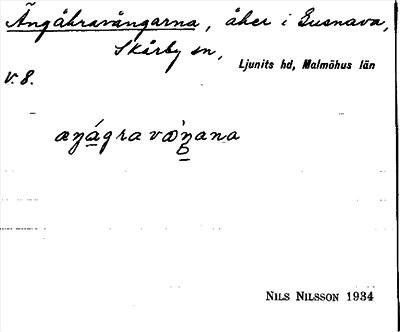 Ängåkravångarna, åker i Gusnava,
Skårby sn,
Ljunits hd, Malmöhus län
v. 8.
NILS NILSSON 1934